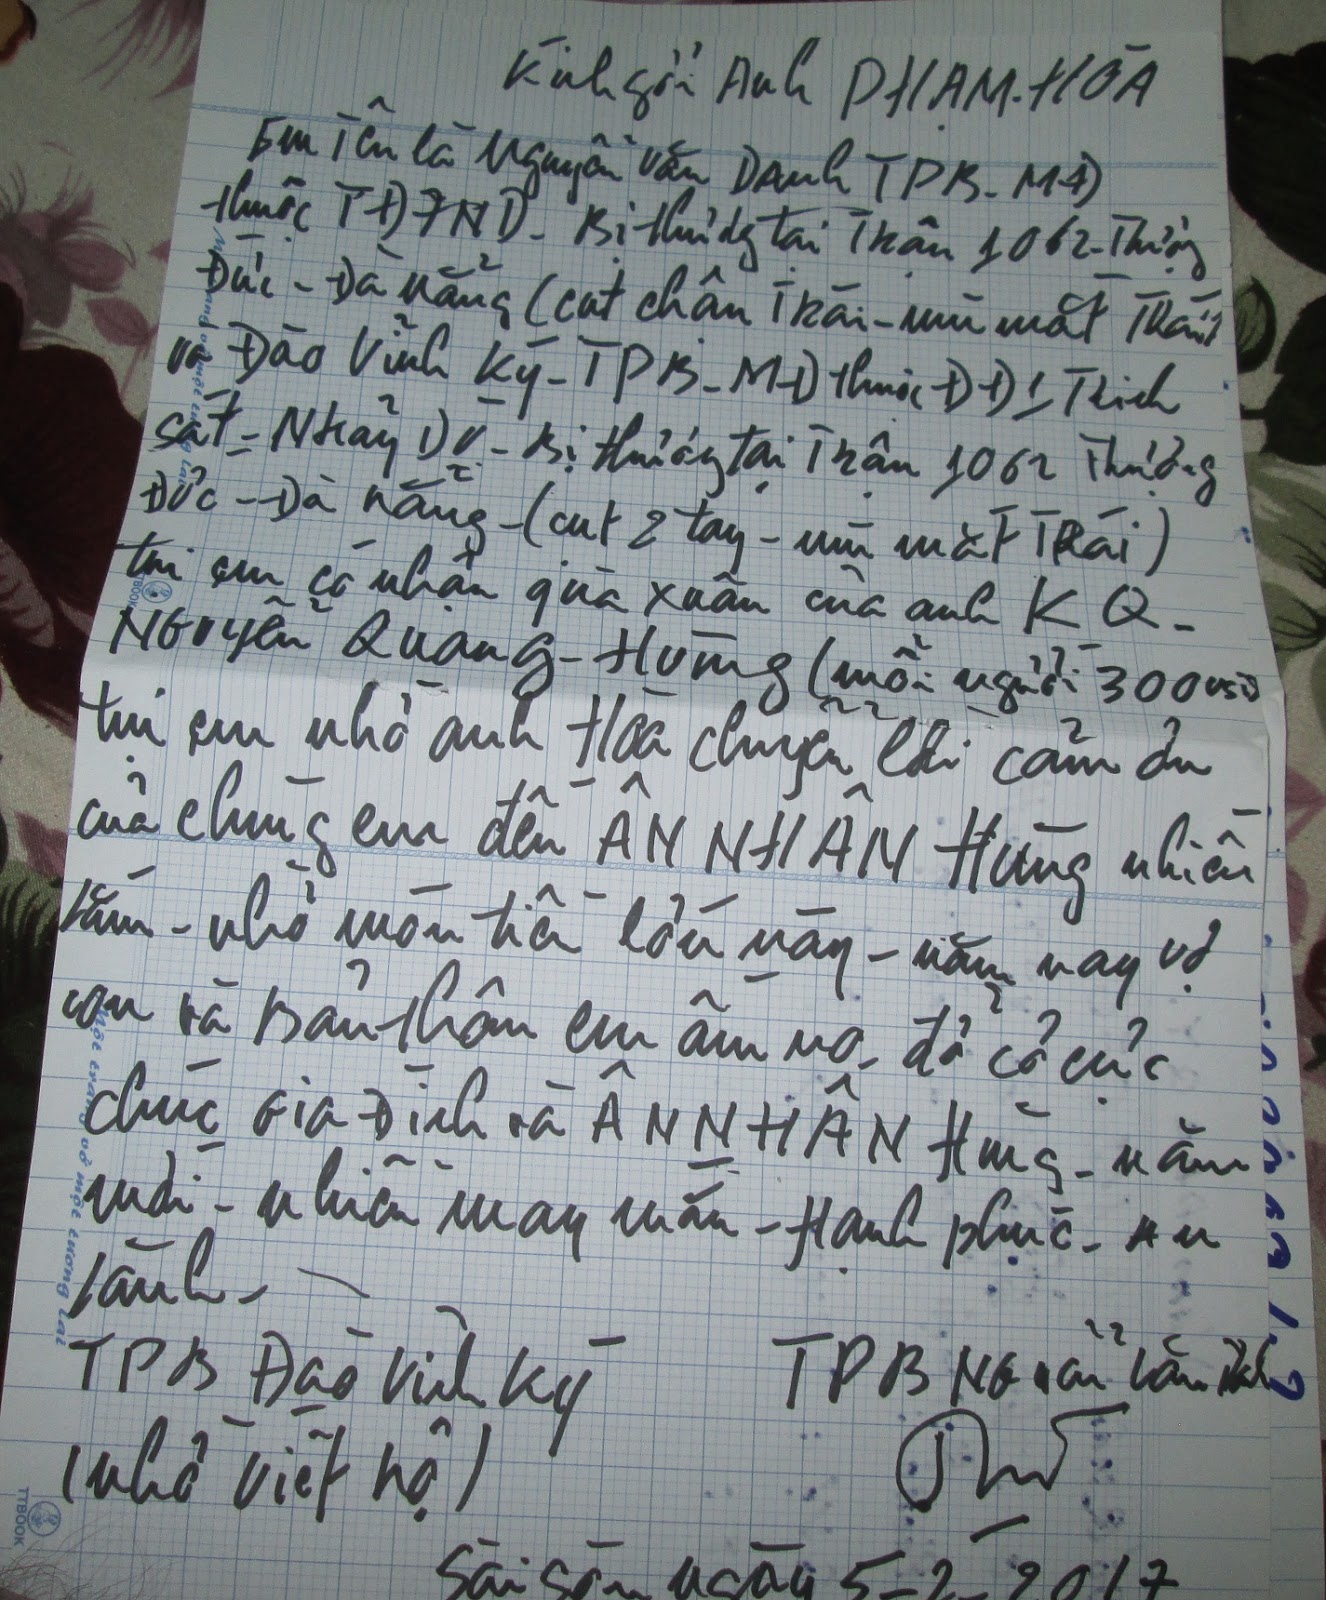 Kính gởi Anh PHẠM.HÒA
Em Tên là Nguyễn Văn Danh TPB_MĐ
thuộc TĐ7ND_ Bị thương tại Trận 1062_Thượng
Đức_Đà nẵng (cụt chân Trái_mù mắt Trái)
và Đào Vĩnh Ký_TPB_MĐ thuộc ĐĐ1 Trinh
sát_NHảy DÙ_Bị thương tại Trận 1062 Thượng
Đức_Đà nẵng_(cụt 2 tay_mù mắt TRái)
tụi em có nhận quà xuân của anh KQ_
NGUYễN QUANG_HÙNG (mỗi người 300USD
tụi em nhờ anh Hòa chuyển lời cảm ơn
của chúng em đến ÂN NHÂN Hùng nhiều
lắm_nhờ món tiền lớn này_năm nay vợ
con và Bản thân em ấm no_đở cơ cực
chúc Gia Đình và ÂN NHÂN Hùng_năm
mới_nhiều may mắn_Hạnh phúc_An
lành_
TPB Đào Vĩnh Ký
(nhờ viết hộ)
TPB Nguyễn Văn Danh
Sài gòn ngày 5_2_2017
Một trang vở một tương lai
TTBOOK